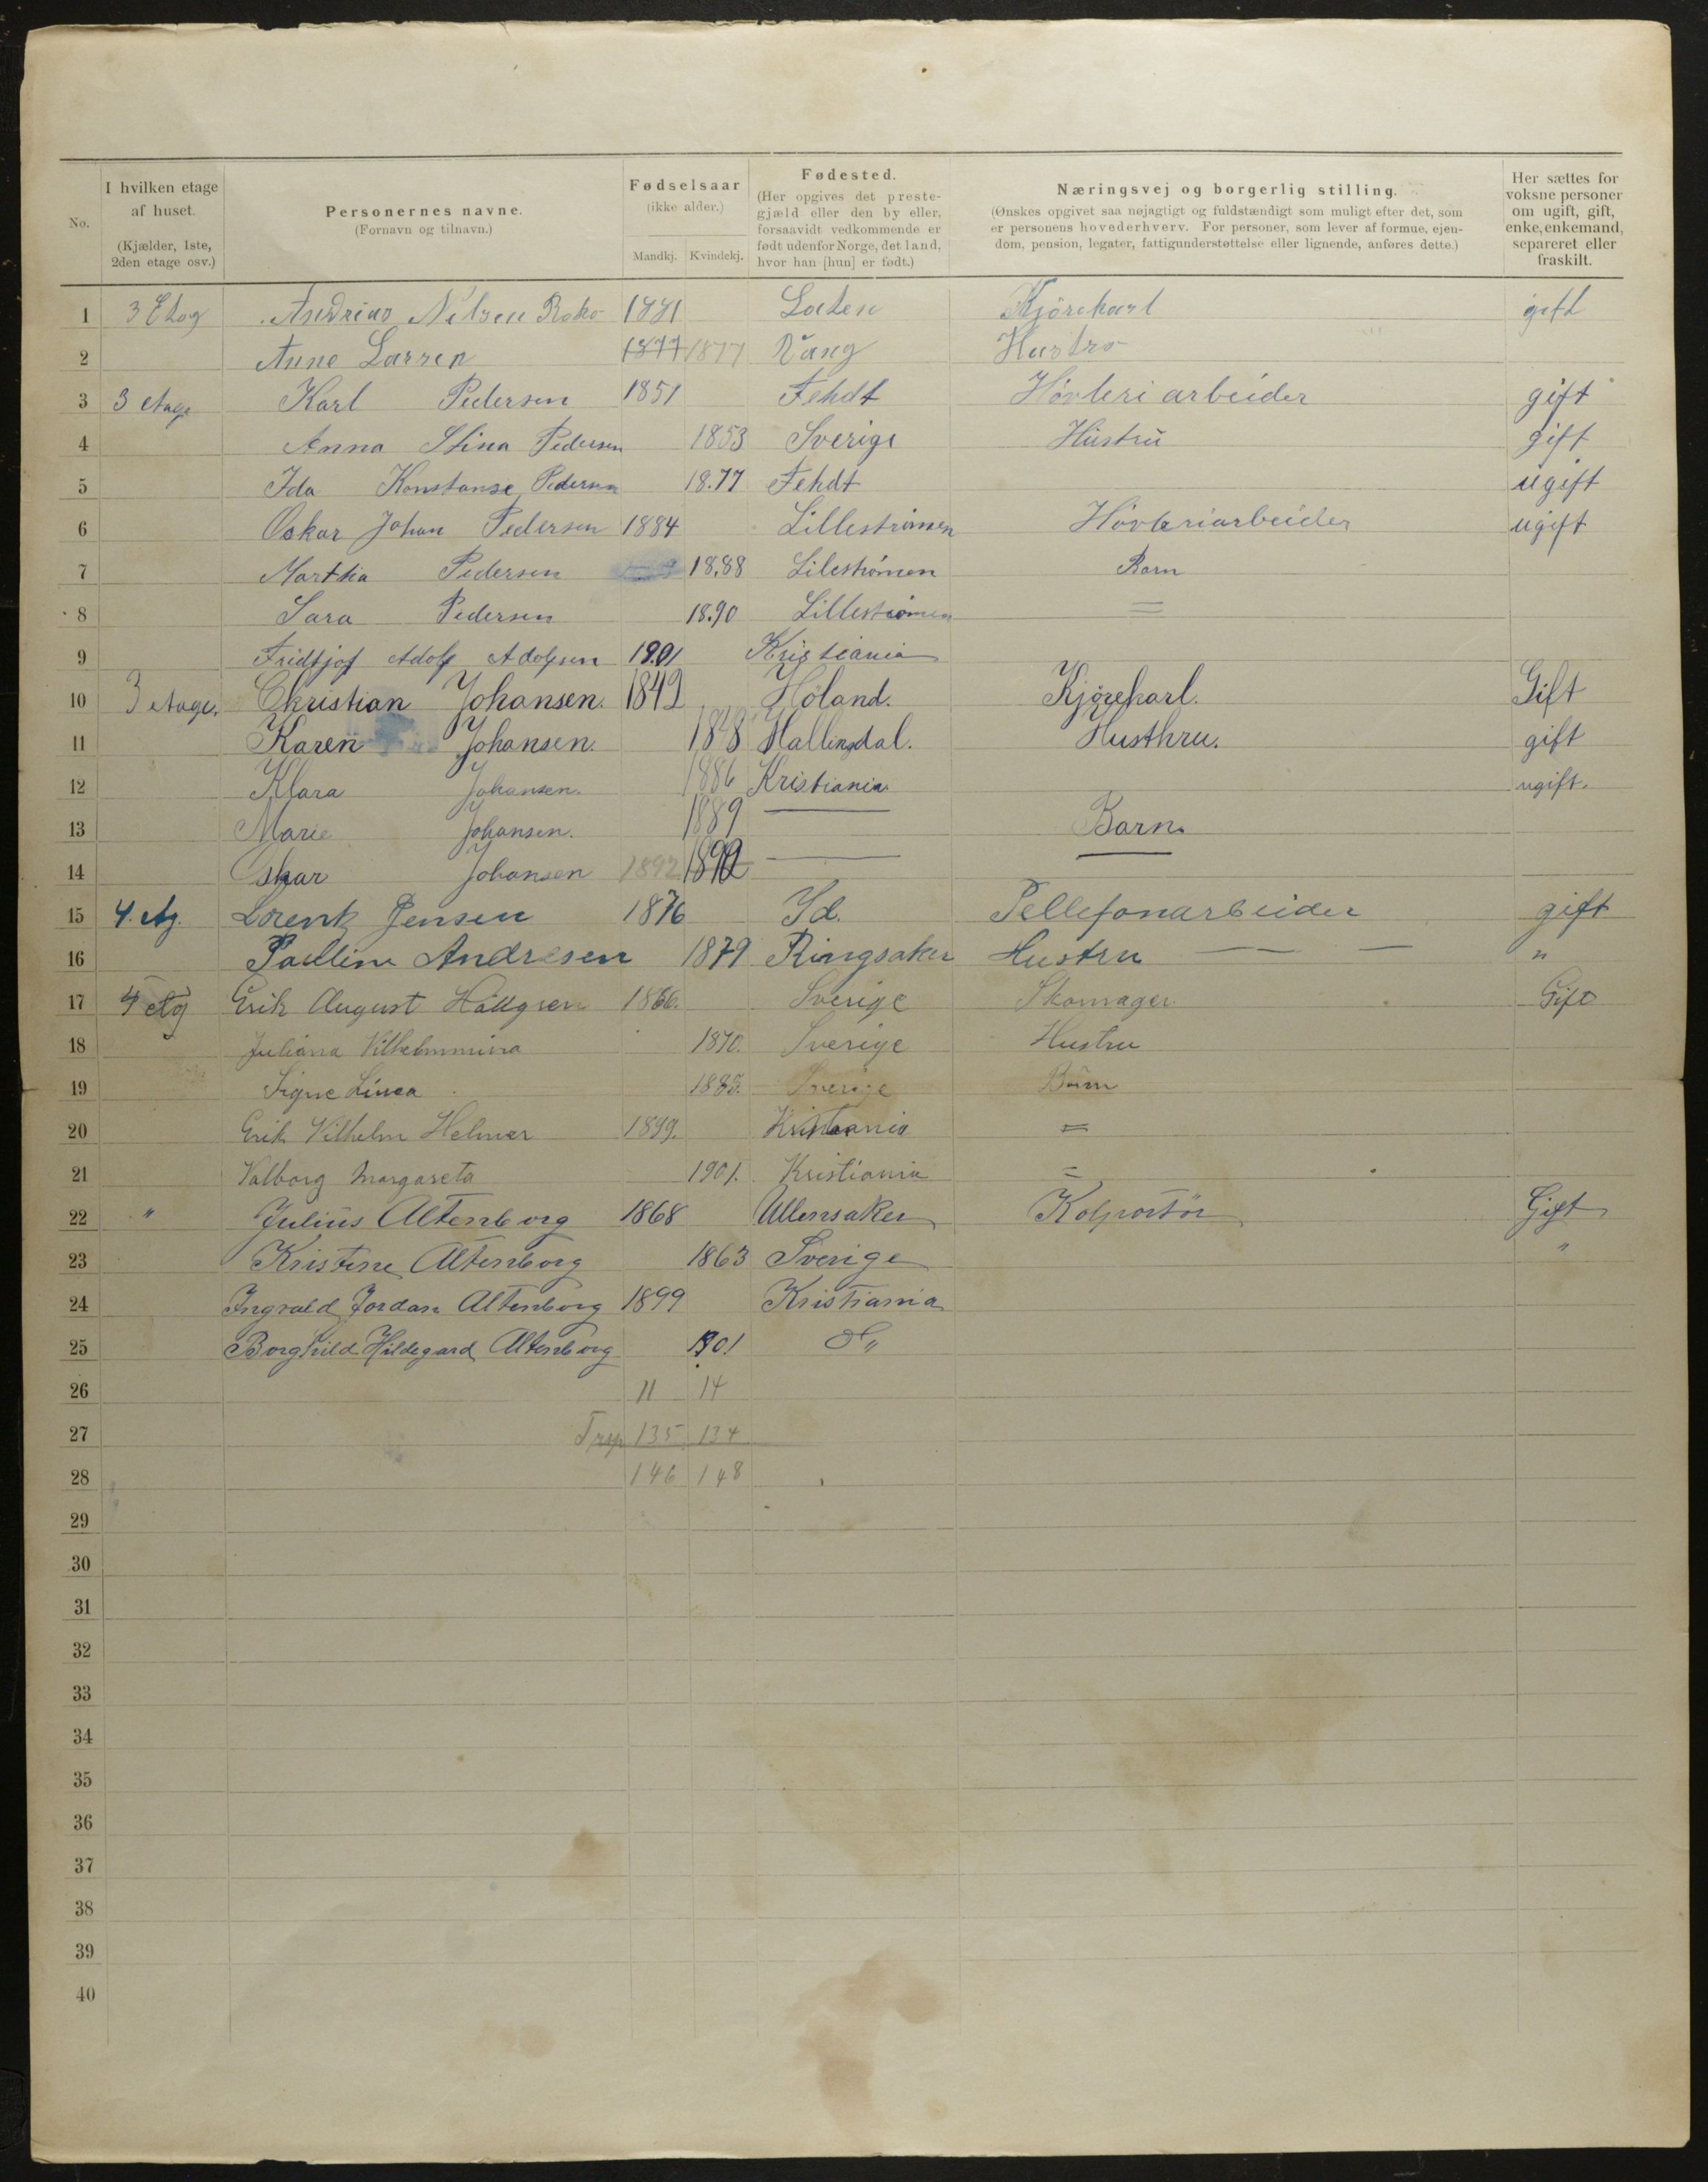 No.
I hvilken etage af huset. (Kjælder, 1ste, 2den etage osv.)
Personernes navne. (Fornavn og tilnavn.)
Fødselsaar (ikke alder.) Mandkj. Kvindekj.
Fødested. (Her opgives det prestegjæld eller den by eller, forsaavidt vedkommende er født udenfor Norge, det land, hvor han [hun] er født.)
Næringsvej og borgerlig stilling. (Ønskes opgivet saa nøjagtigt og fuldstændigt som muligt efter det, som er personens hovederhverv. For personer, som lever af formue, ejendom, pension, legater, fattigunderstøttelse eller lignende, anføres dette.)
Her sættes for voksne personer om ugift, gift, enke, enkemand, separeret eller fraskilt.
1 3 Etag Andreas Nilsen 1881 Løten Kjørekarl gift
2 Anne Larsen 1877 1877 Vang Hustro
3 3 etage Karl Pedersen 1851 Fehdt Høvleri arbeider gift
4 Anna Stina Pedersen 1853 Sverige Hustru gift
5 Ida Konstanse Pedersen 18.77 Fehdt ugift
6 Oskar Johan Pedersen 1884 Lillestrømen Høvleriarbeider ugift
7 Martha Pedersen 18.88 Lilestrømen Barn
8 Sara Pedersen 18.90 Lillestrømen =
9 Fridtjof Adolf Adolfsen 1901 Kristiania
10 3 etage. Christian Johansen. 1842 Høland. Kjørekarl. Gift
11 Karen Johansen. 1848 Hallingdal. Husthru. gift
12 Klara Johansen. 1886 Kristiania ugift.
13 Marie Johansen. 1889 — Barn.
14 Oskar Johansen 1892 1892 — —
15 4. etg. Lorentz Jensen 1876 Id. Tellefonarbeider gift
16 Pauline Andresen 1879 Ringsaker Hustru — — "
17 4 etg Erik August Hallgren 1866. Sverige Skomager Gift
18 Juliana Vilhelmmina 1870. Sverige Hustru
19 Signe Linea 1885. Sverige Børn
20 Erik Vilhelm Helmer 1899. Kristiania =
21 Valborg Margareta 1901. Kristiania =
22 " Julius Altenborg 1868 Ullensaker Kolportør Gift
23 Kristine Altenborg 1863 Sverige "
24 Ingvald Jordan Altenborg 1899 Kristiania
25 Borghild Hildegard Altenborg 1901 do "
26 11 14
27 Trsp 135 134
28 146 148
29
30
31
32
33
34
35
36
37
38
39
40